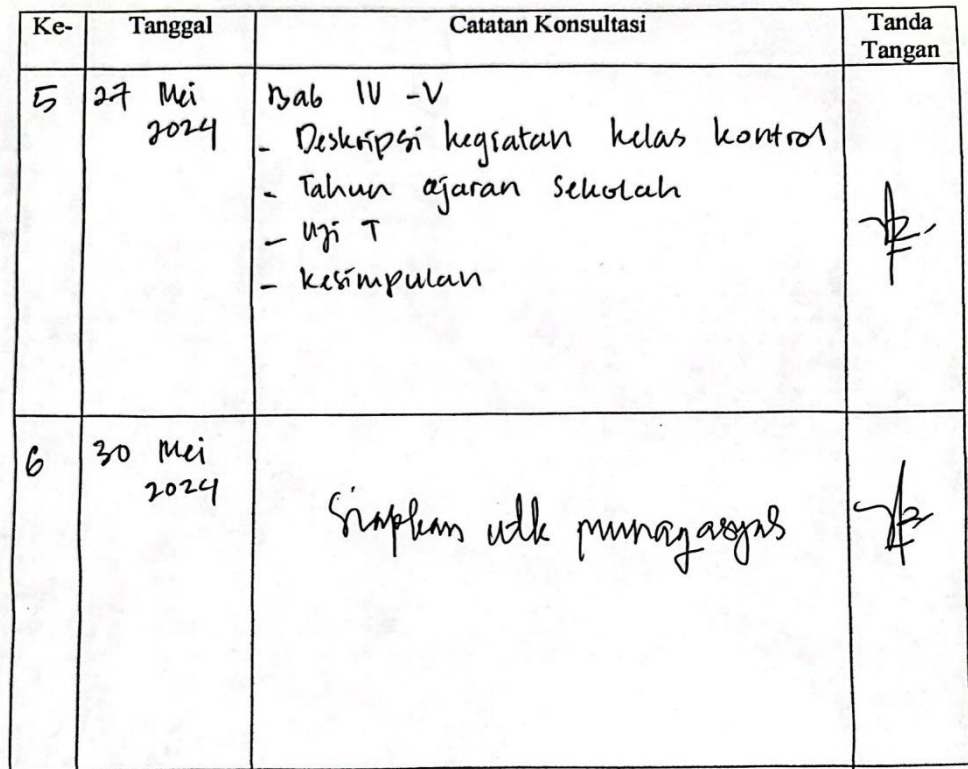 Ke- Tanggal Catatan Konsultasi Tanda Tangan
5 27 Mei 2024 Bab IV - V
- Deskripsi kegiatan kelas kontrol
- Tahun ajaran Sekolah
- Uji T
- Kesimpulan
6 30 Mei 2024
Siapkan utk munaqasyas